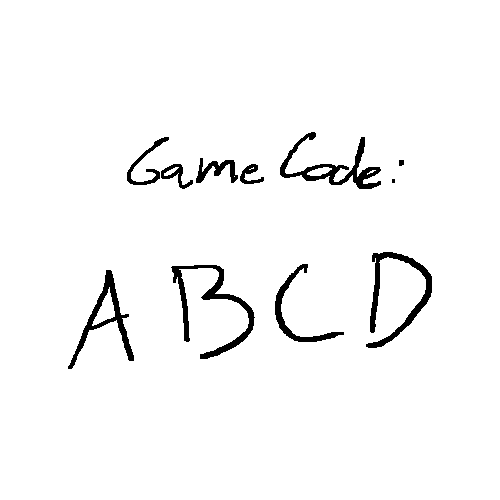 Game Code:
ABCD